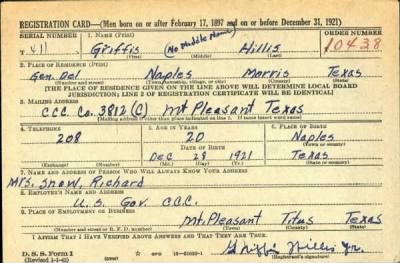 REGISTRATION CARD—(Men born on or after February 17, 1897 and on or before December 31, 1921)
SERIAL NUMBER 1. NAME (Print) ORDER NUMBER
T 411 Griffis (No Middle Name) Hillis 10438
(First) (Middle) (Last)
2. PLACE OF RESIDENCE (Print)
Gen. Del Naples Morris Texas
(Number and street) (Town, township, village, or city) (County) (State)
[THE PLACE OF RESIDENCE GIVEN ON THE LINE ABOVE WILL DETERMINE LOCAL BOARD
JURISDICTION; LINE 2 OF REGISTRATION CERTIFICATE WILL BE IDENTICAL]
3. MAILING ADDRESS
C.C.C. Co. 3812 (C) Mt Pleasant Texas
[Mailing address if other than place indicated on line 2. If same insert word same]
4. TELEPHONE 5. AGE IN YEARS 6. PLACE OF BIRTH
208 20 Naples
DATE OF BIRTH (Town or county)
Dec 28 1921 Texas
(Mo.) (Day) (Yr.) (State or country)
7. NAME AND ADDRESS OF PERSON WHO WILL ALWAYS KNOW YOUR ADDRESS
Mrs. Snow, Richard
8. EMPLOYER'S NAME AND ADDRESS
U.S. Gov. C.C.C.
9. PLACE OF EMPLOYMENT OR BUSINESS
Mt. Pleasant Titus Texas
(Number and street or R. F. D. number) (Town) (County) (State)
I AFFIRM THAT I HAVE VERIFIED ABOVE ANSWERS AND THAT THEY ARE TRUE.
D. S. S. Form 1
(Revised 1-1-42) (over)